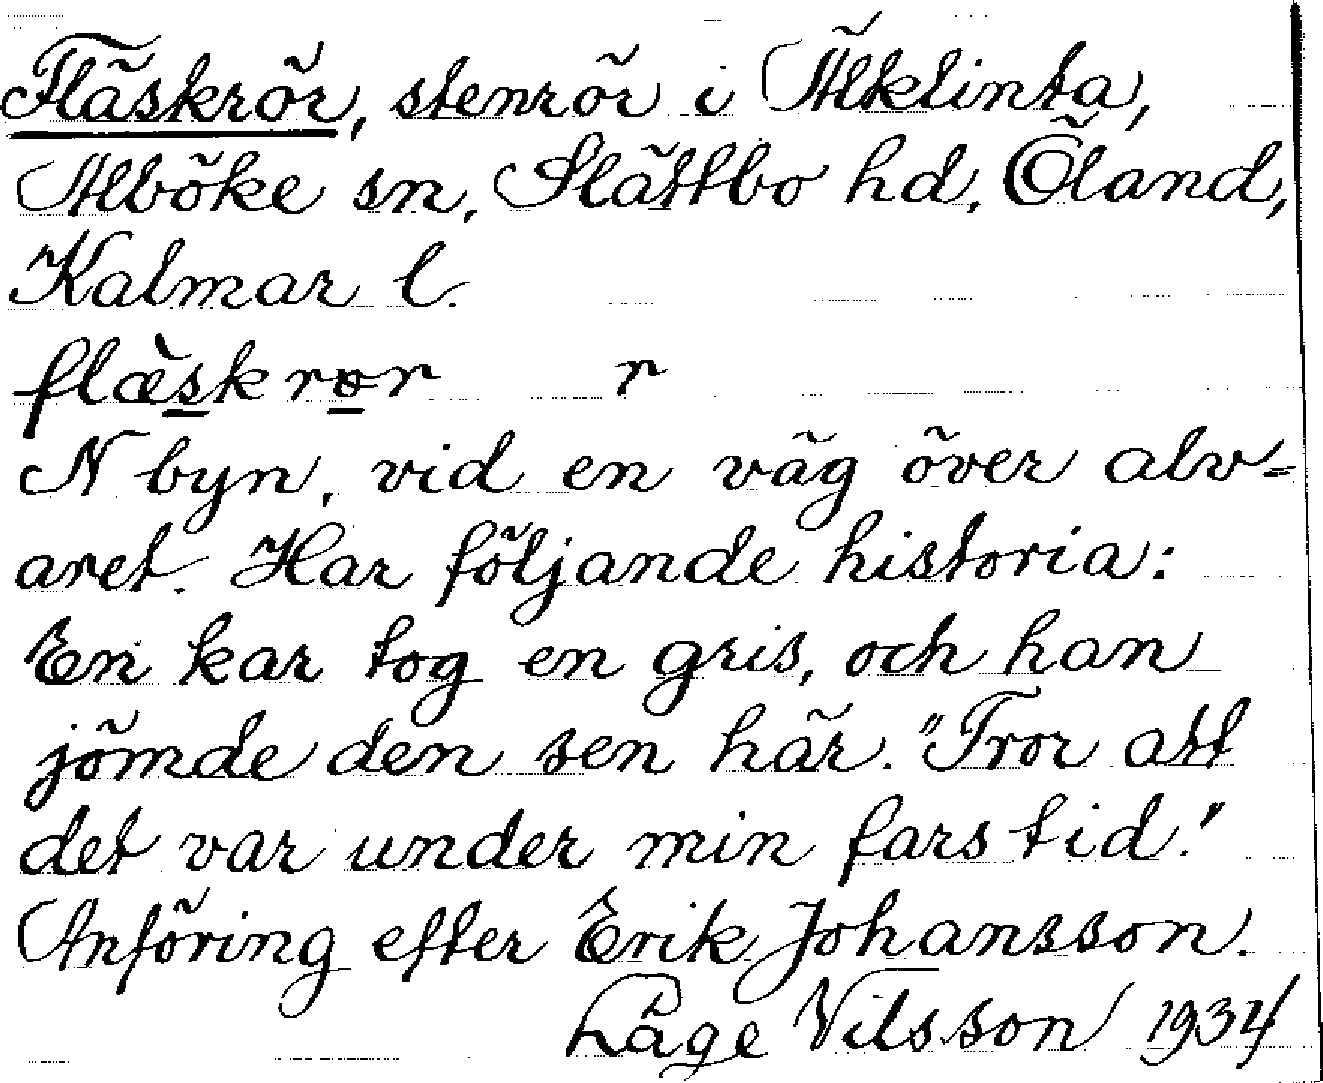 Fläskrör, stenrör i Älklinta,
Alböke sn, Slättbo hd, Öland,
Kalmar l.
flæ̀skrɵr r
N byn, vid en väg över alv-
aret. Har följande historia:
En kar tog en gris, och han
jömde den sen här. "Tror att
det var under min fars tid."
Anföring efter Erik Johansson.
Låge Nilsson 1934